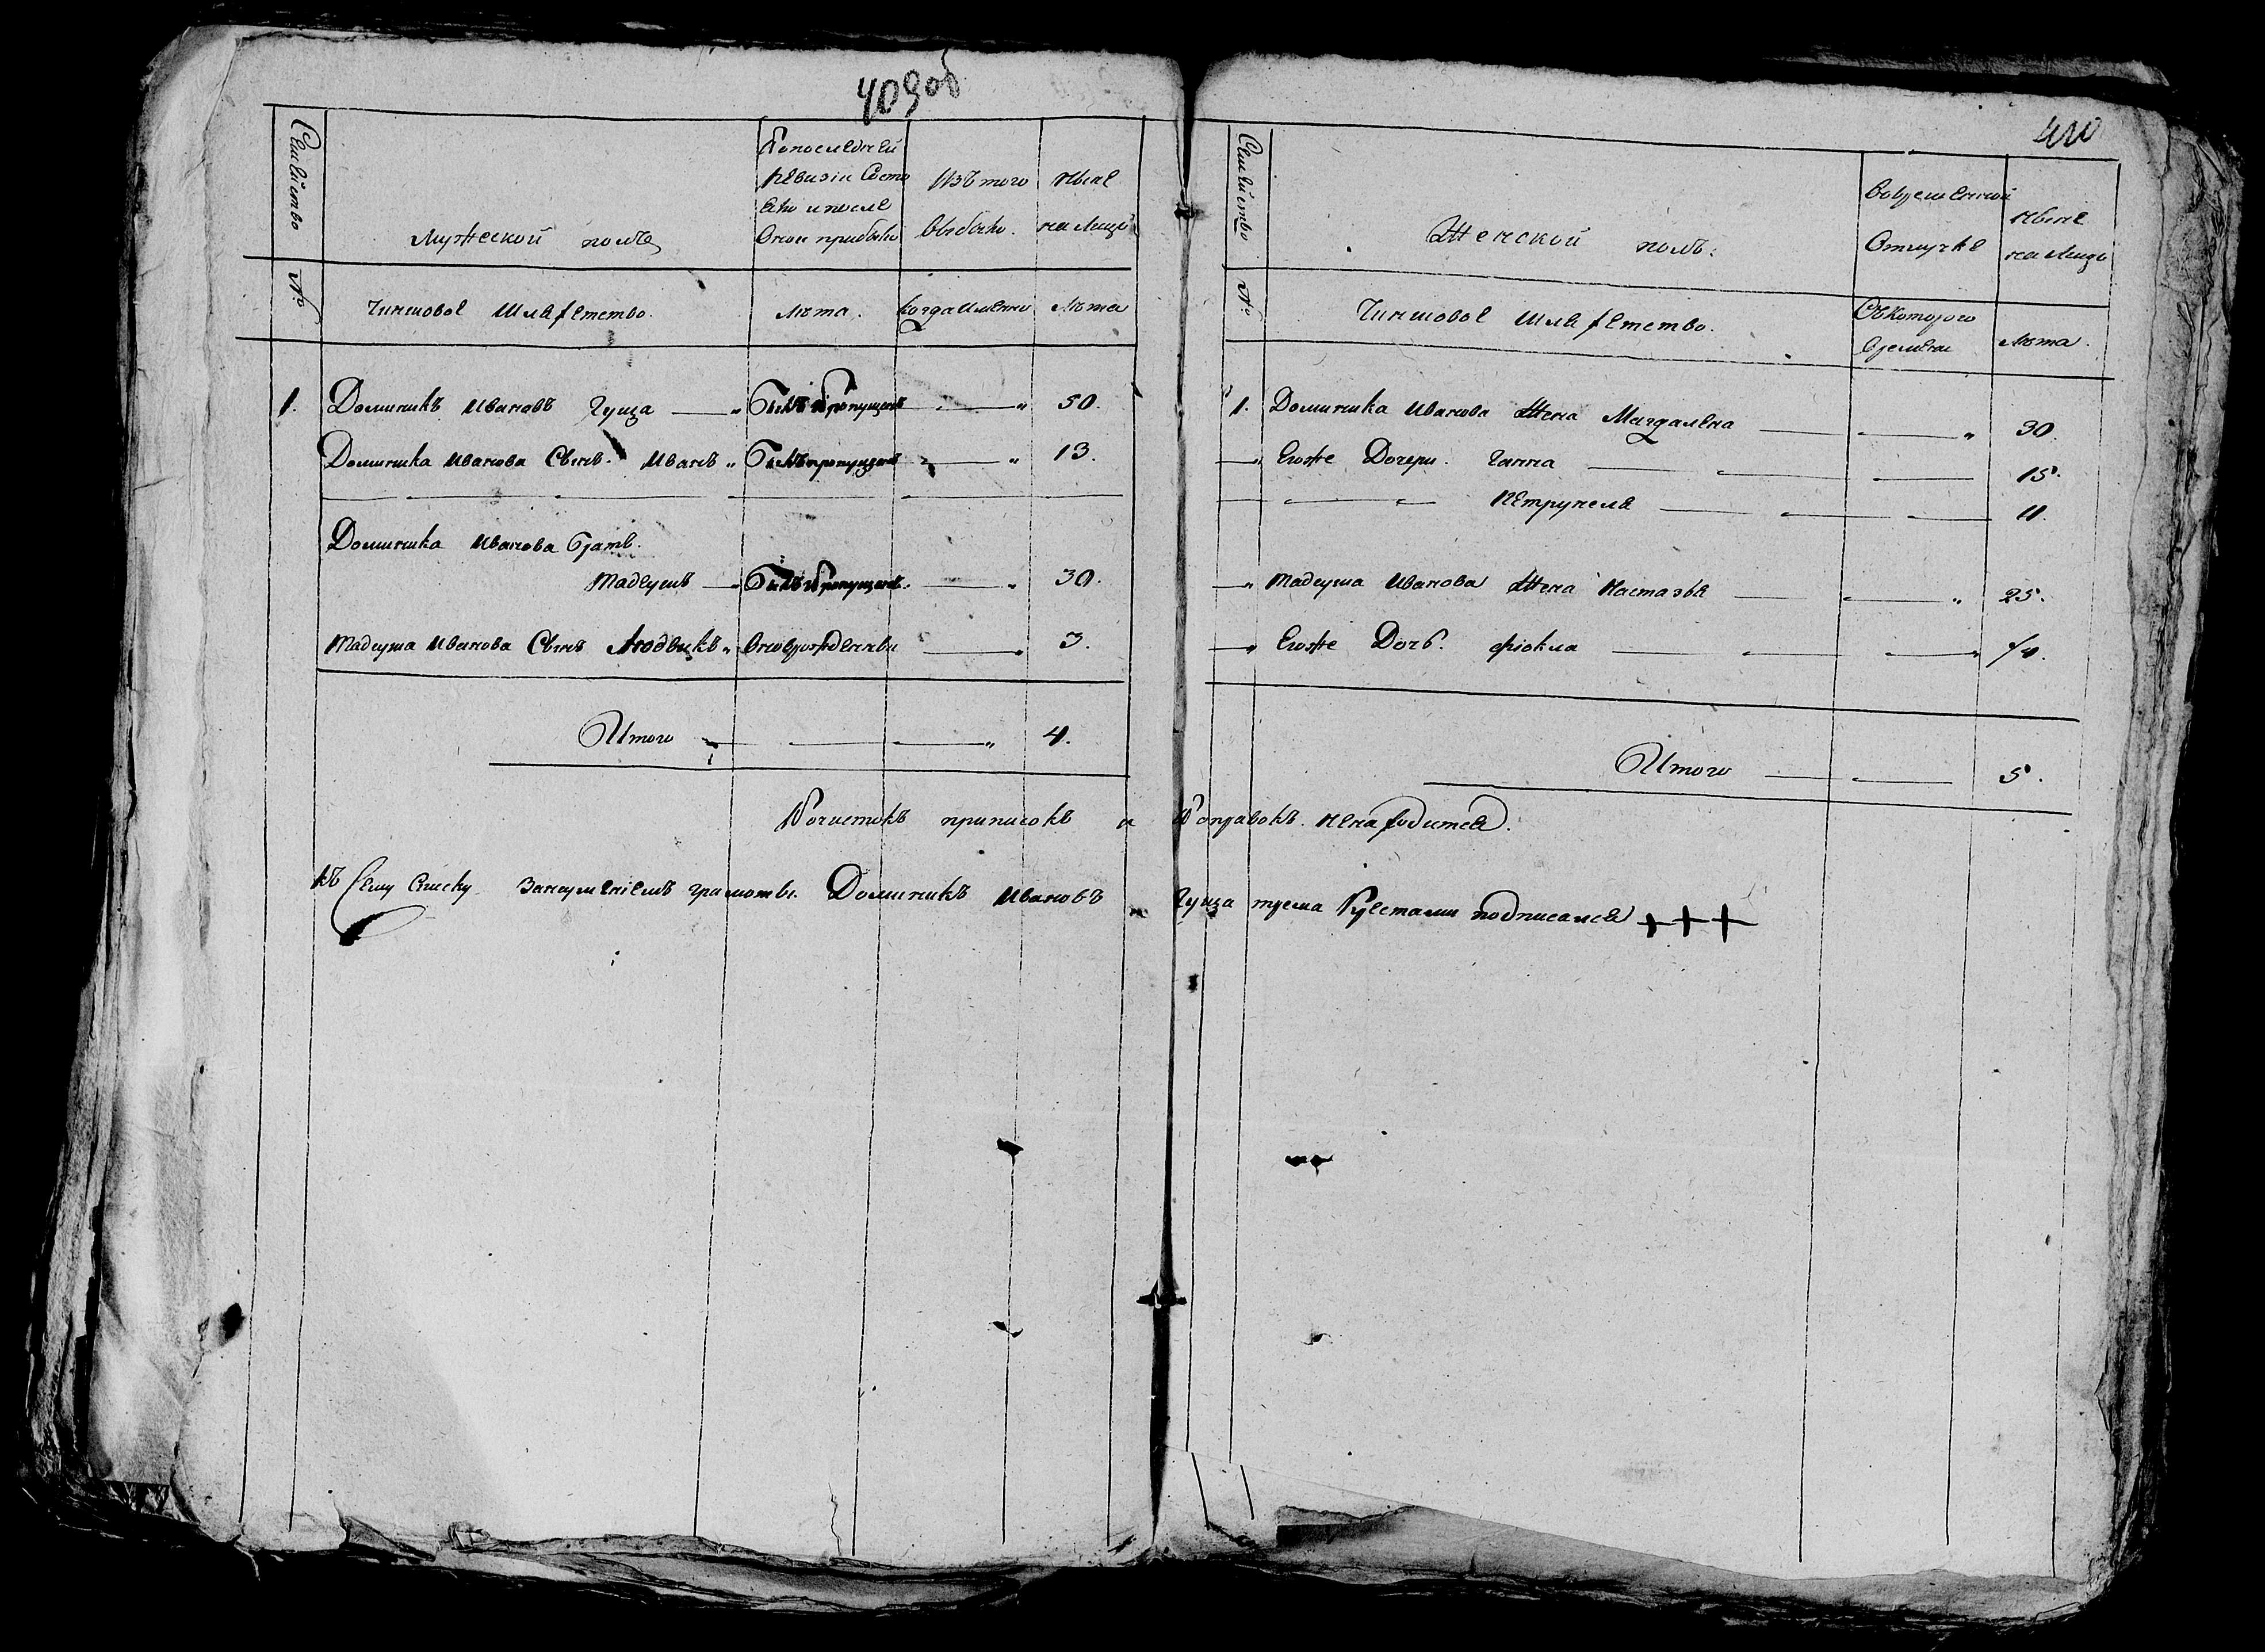 409об
410
Семейство
Мужеской полъ
По последней
ревизіи Состо
яло и после
Оной прибыло
Изъ того
Выбыло.
Ныне
на лицо
№
Чиншовое Шляхетство.
Лѣта.
Когда именно
Лѣта
1. Доминикъ Ивановъ Гуща — „ Былъ пропущенъ — „ 50.
Доминика Иванова Сынъ. Иванъ „ Былъ пропущенъ — „ 13.
Доминика Иванова братъ.
Тадеушъ — Былъ пропущенъ. — „ 30.
Тадеуша Иванова Сынъ Людвикъ „ Вновьрожденны — „ 3.
Итого — — — „ 4.
Семейство
Женской полъ.
Во временной
Отлучке
Ныне
на лицо
№
Чиншовое шляхетство.
Съ которого
времени
Лѣта.
1. Доминика Иванова Жена Магдалена — — „ 30.
— „ Егоже Дочери. Ганна — — — 15.
— — — Петрунеля — — — 11.
— „ Тадеуша Иванова Жена Настазья — — „ 25.
— „ Егоже Дочь. Фіокла — — — „
Итого — — 5.
Почистокъ приписокъ и Поправокъ. Ненаходится.
Къ Сему Списку Занеумѣніемъ грамоты. Доминикъ Ивановъ Гуща тремя Крестами подписался +++